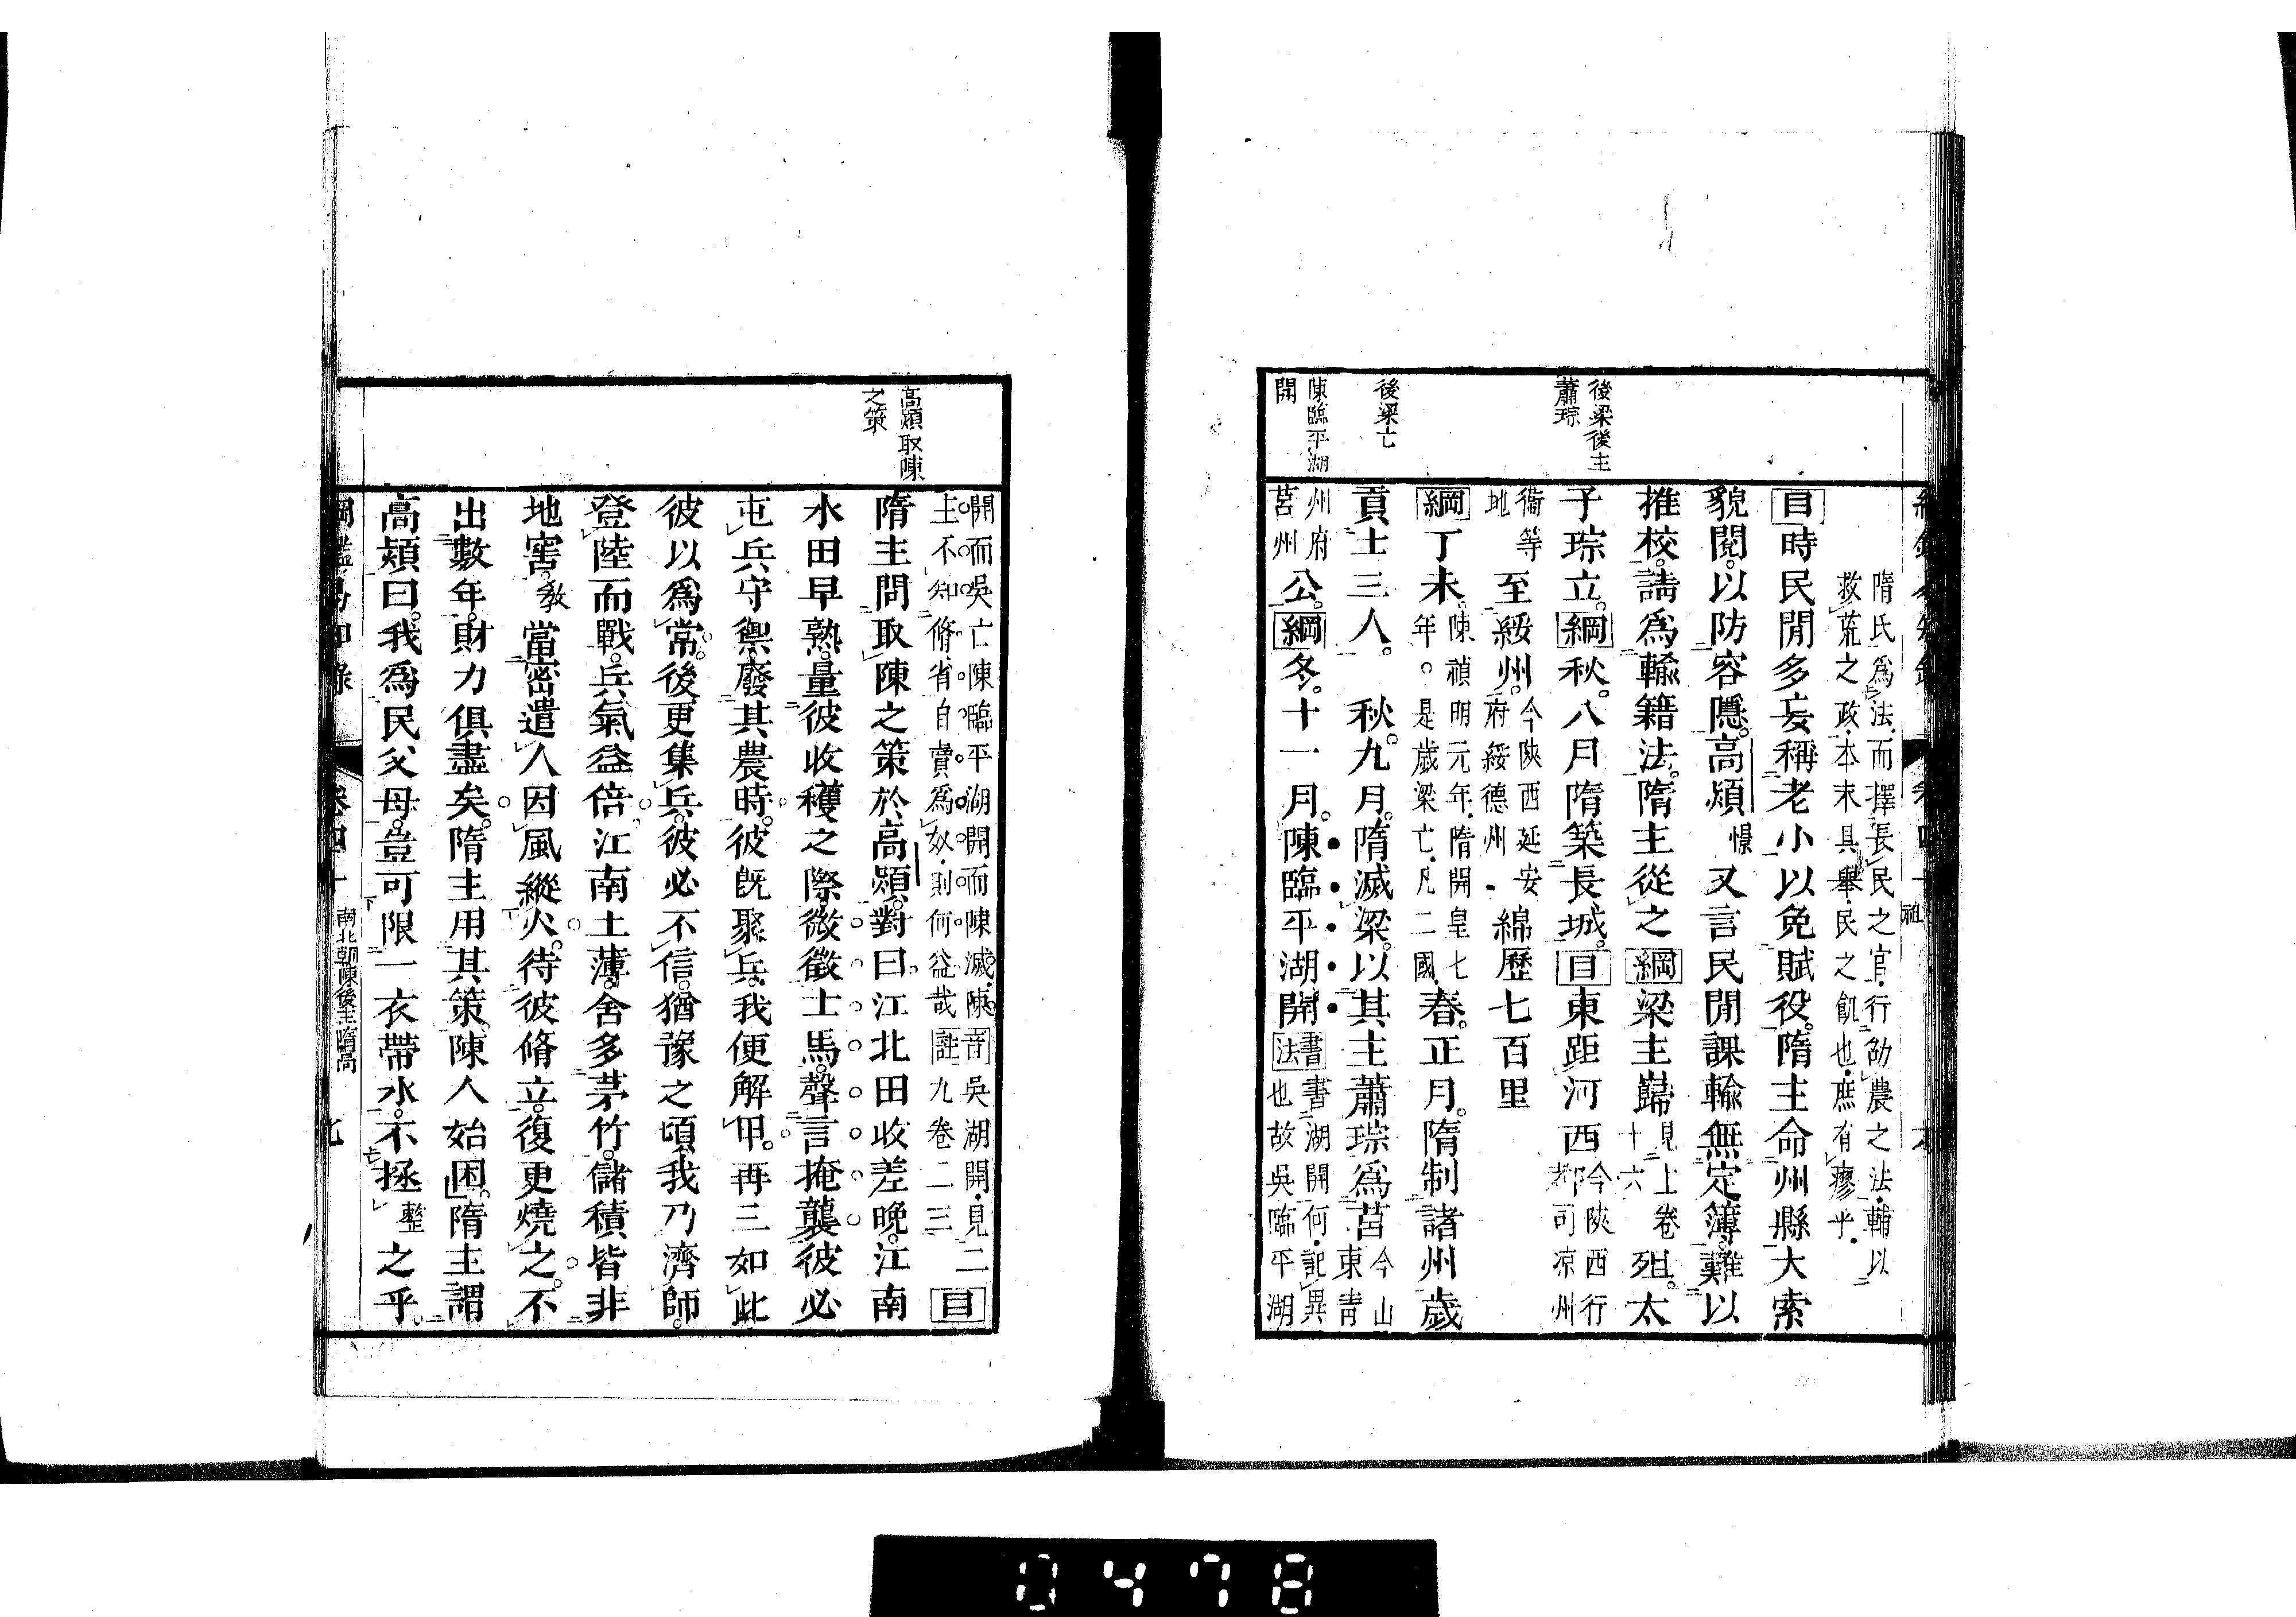 後梁後主
蕭琮
後梁亡
陳臨平湖
開
隋氏爲法而擇長民之官行劭農之法輔以
救荒之政本末具舉民之飢也庶有瘳乎
目時民閒多妄稱老小以免賦役隋主命州縣大索
貌閱以防容隱高熲憬又言民閒課輸無定簿難以
推校請爲輸籍法隋主從之綱梁主巋見上卷十六殂太
子琮立綱秋八月隋築長城目東距河西今陝西行都司凉州
衞等地至綏州今陝西延安府綏德州綿歷七百里
綱丁未陳禎明元年隋開皇七年是歲梁亡凡二國春正月隋制諸州歲
貢士三人 秋九月隋滅梁以其主蕭琮爲莒今山東青
州府莒州公綱冬十一月陳臨平湖開書法書湖開何記異也故吳臨平湖
高熲取陳
之策
開而吳亡陳臨平湖開而陳滅陳主不知脩省自賣爲奴則何益哉音註吳湖開見二九卷二三目
隋主問取陳之策於高熲對曰江北田收差晚江南
水田早熟量彼收穫之際微徵士馬聲言掩襲彼必
屯兵守禦廢其農時彼旣聚兵我便解甲再三如此
彼以爲常後更集兵彼必不信猶豫之頃我乃濟師
登陸而戰兵氣益倍江南土薄舍多茅竹儲積皆非
地窖教當密遣人因風縱火待彼脩立復更燒之不
出數年財力俱盡矣隋主用其策陳人始困隋主謂
高熲曰我爲民父母豈可限一衣帶水不拯整之乎
卷四十
南北朝陳後主隋高
0478